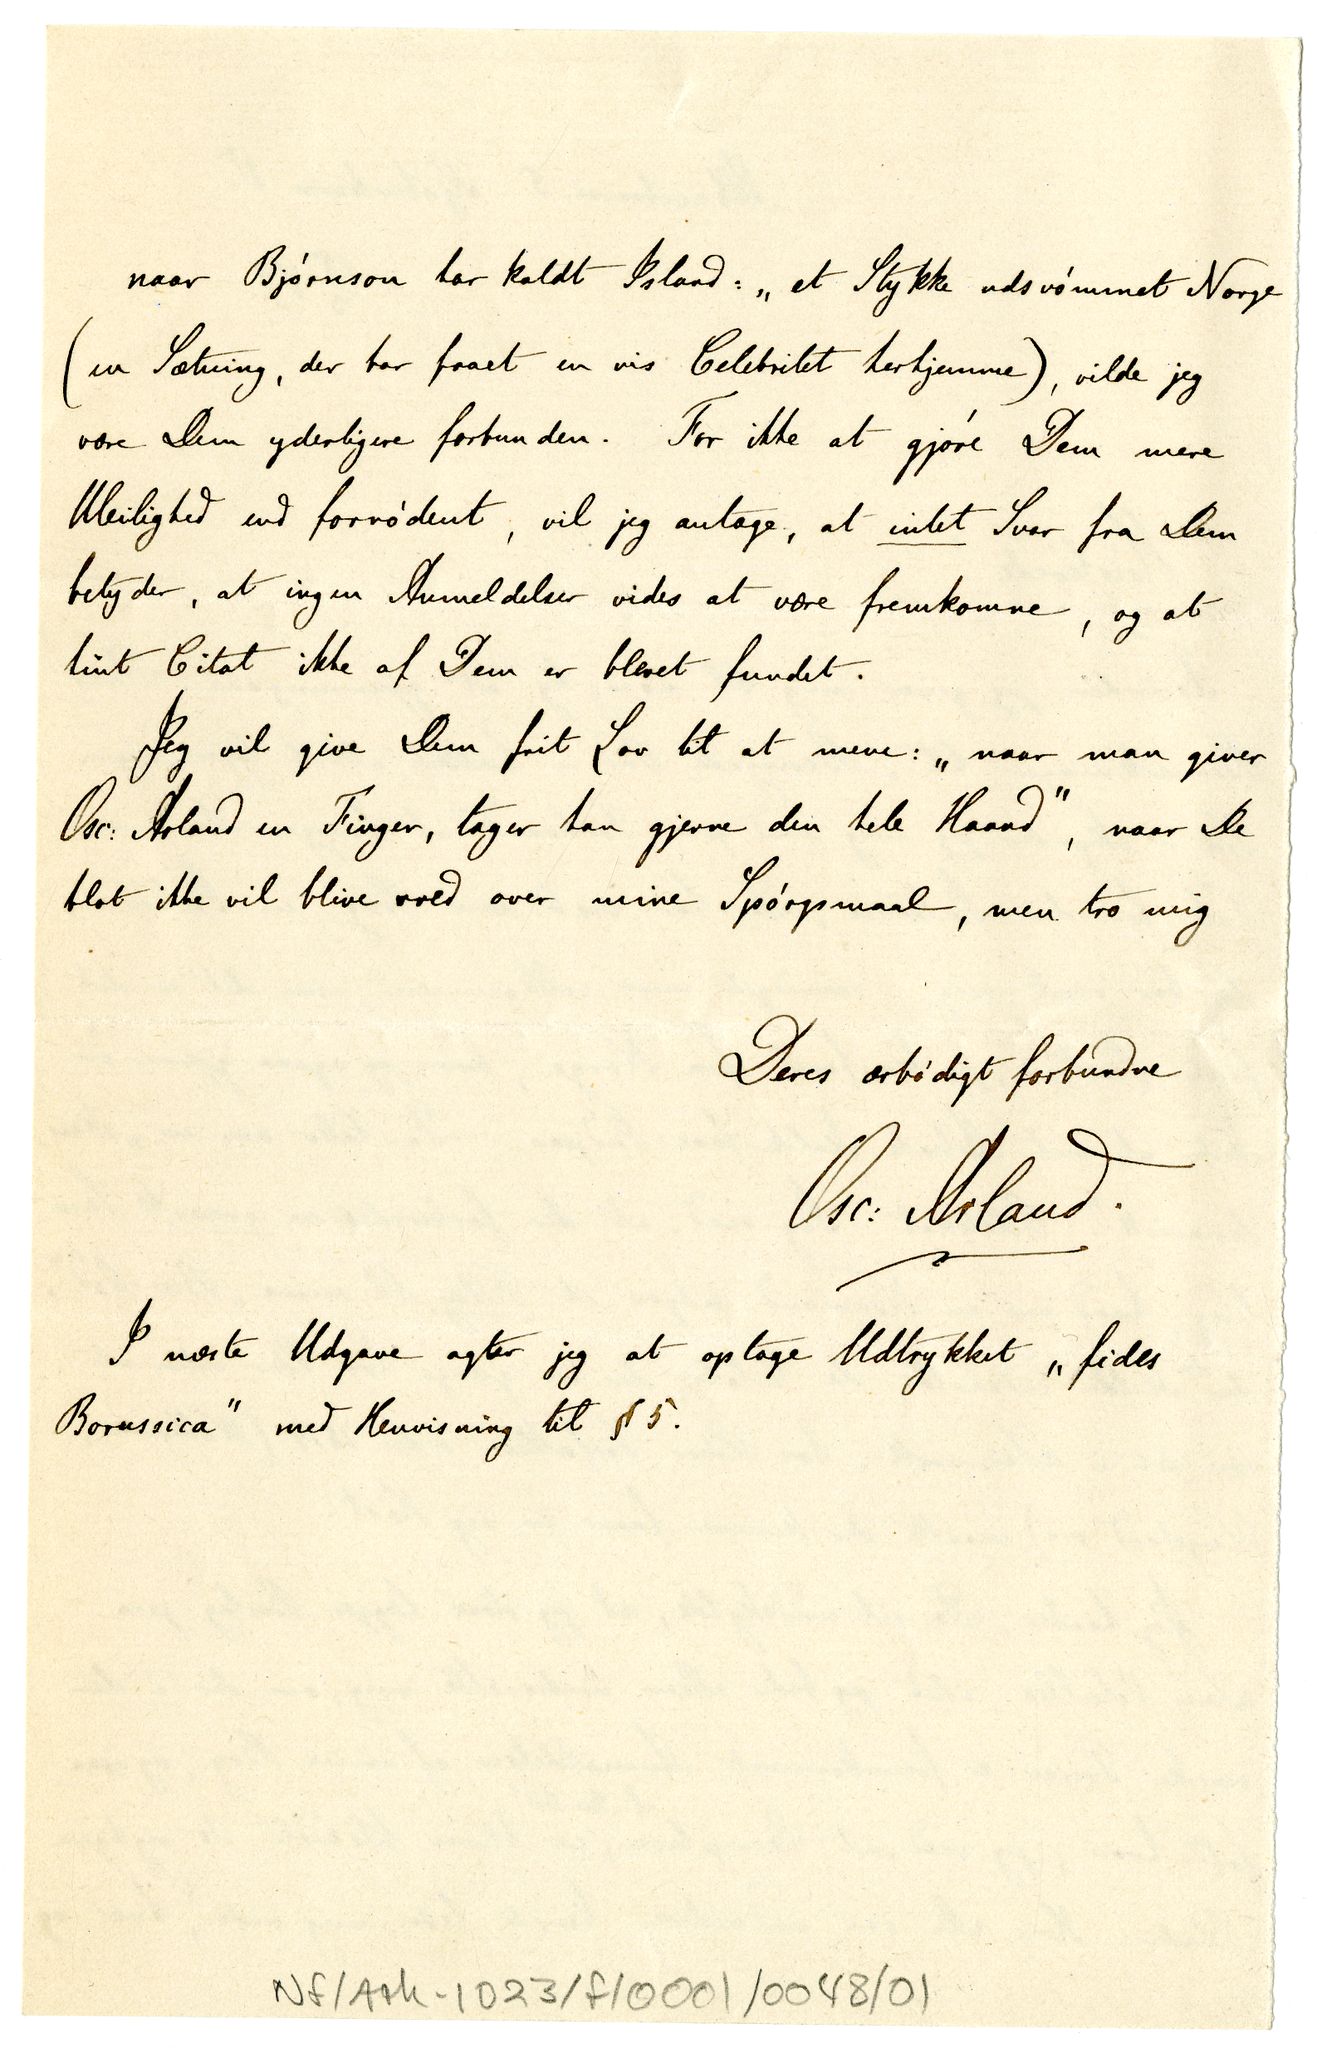 naar Bjórnson har kaldt Island: „et Stykke udsvómmet Norge
(en Sætning, der har faaet en vis Celebritet herhjemme), vilde jeg
være Dem yderligere forbunden. For ikke at gjóre Dem mere
Uleilighed end fornódent, vil jeg antage, at intet Svar fra Dem
betyder, at ingen Anmeldelser vides at være fremkomne, og at
hint Citat ikke af Dem er blevet fundet.
Jeg vil give Dem frit Lov til at mene: „naar man giver
Osc: Arland en Finger, tager han gjerne den hele Haand", naar De
blot ikke vil blive vred over mine Spórgsmaal, men tro mig
Deres ærbódigt forbundne
Osc: Arland.
I næste Udgave agter jeg at optage Udtrykket „fides
Borussica" med Henvisning til § 5.
NF/Ark-1023/f/0001/0048/01